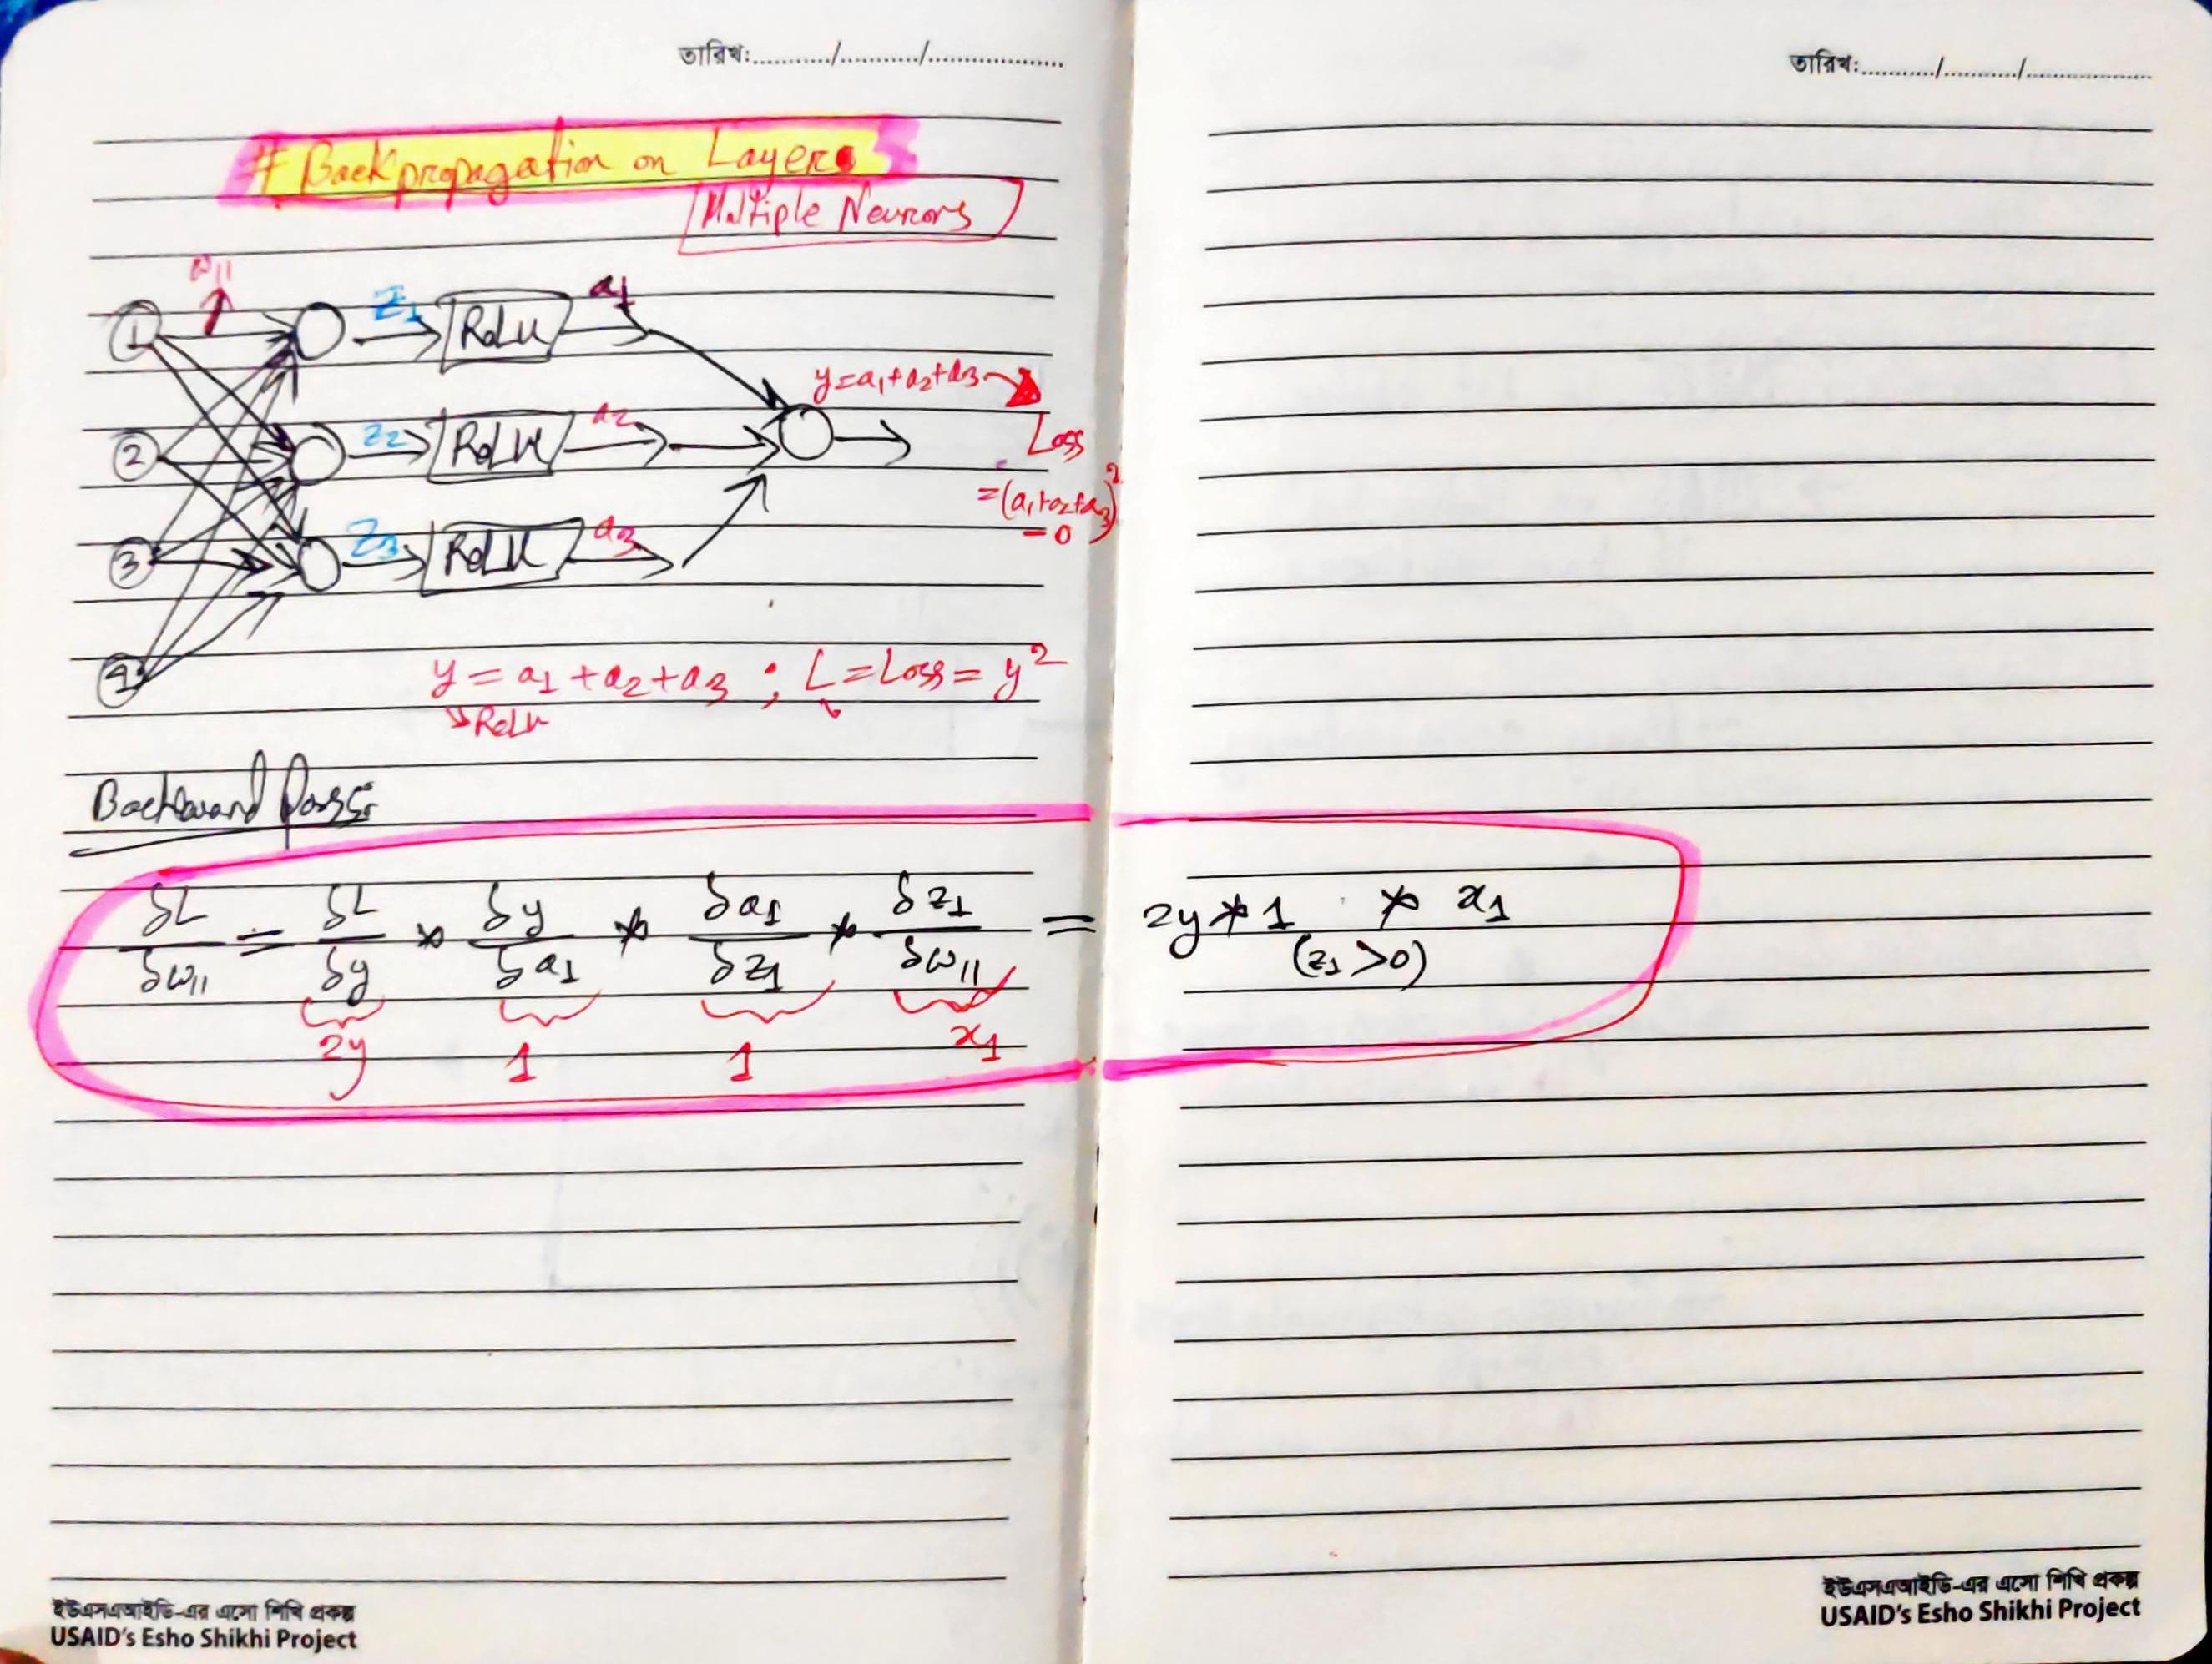 তারিখ:........../........../..................
তারিখ:........../........../..................
# Backpropagation on Layer
Multiple Neurons
w11
1 z1 ReLu a1
y=a1+a2+a3
2 z2 ReLu a2
Loss
=(a1+a2+a3)²
-0
3 z3 ReLu a3
4
y = a1 + a2 + a3 ; L = Loss = y²
ReLu
Backward Pass:
δL/δw11 = δL/δy * δy/δa1 * δa1/δz1 * δz1/δw11 = 2y * 1 (z1>0) * x1
2y 1 1 x1
ইউএসএআইডি-এর এসো শিখি প্রকল্প
USAID's Esho Shikhi Project
ইউএসএআইডি-এর এসো শিখি প্রকল্প
USAID's Esho Shikhi Project